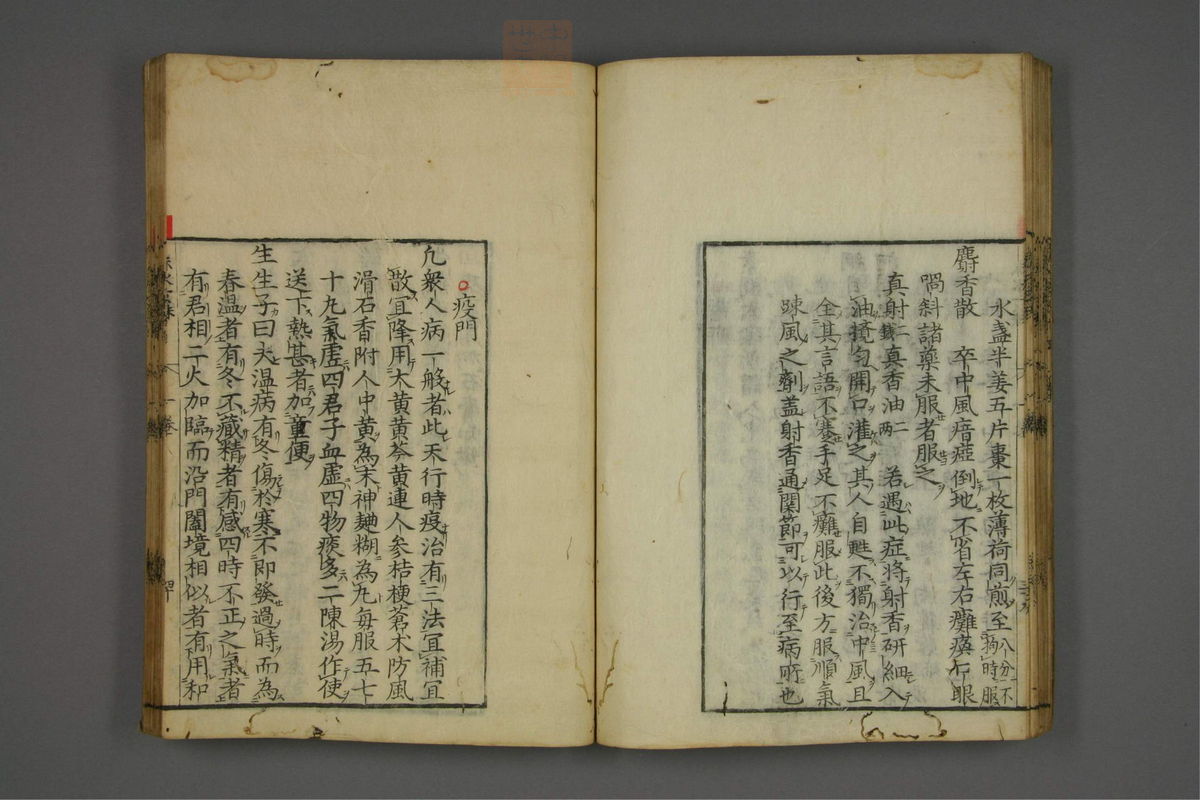 水盞半姜五片棗一枚薄荷同煎至八分不拘時服
麝香散　卒中風瘖瘂倒地不省左右癱瘓口眼
喎斜諸藥未服者服之
真射二錢真香油二兩　若遇此症將射香研細入
油攪匀開口灌之其人自甦不獨治中風且
全其言語不蹇手足不癱服此後方服順氣
疎風之劑盖射香通関節可以行至病所也
疫門
凢衆人病一般者此天行時疫治有三法宜補宜
散宜降用大黄黄芩黄連人参桔梗蒼朮防風
滑石香附人中黄為末神麯糊為丸毎服五七
十丸氣虚四君子血虚四物痰多二陳湯作使
送下熱甚者加童便
生生子曰夫温病有冬傷於寒不即發過時而為
春温者有冬不藏精者有感四時不正之氣者
有君相二火加臨而沿門闔境相似者有用和
一卷